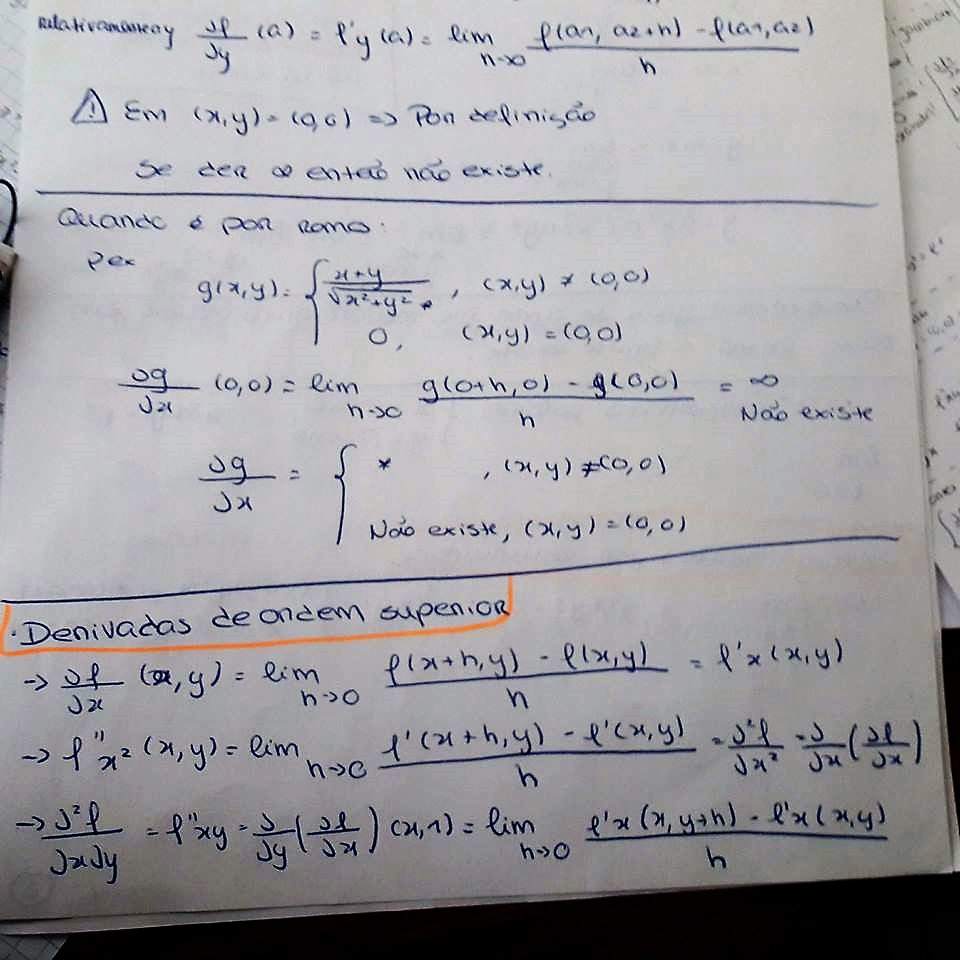 Relativamente a y ∂f/∂y (a) = f'y (a) = lim h→0 f(a1, a2+h) - f(a1, a2) / h
⚠ Em (x,y) = (0,0) => Por definição
Se der ∞ então não existe.
Quando é por ramo:
pex
g(x,y) = { x+y / √x²+y² * , (x,y) ≠ (0,0)
0, (x,y) = (0,0)
∂g/∂x (0,0) = lim h→0 g(0+h,0) - g(0,0) / h = ∞
Não existe
∂g/∂x = { * , (x,y) ≠ (0,0)
Não existe, (x,y) = (0,0)
· Derivadas de ordem superior
→ ∂f/∂x (x,y) = lim h→0 f(x+h,y) - f(x,y) / h = f'x (x,y)
→ f''x² (x,y) = lim h→0 f'(x+h,y) - f'(x,y) / h = ∂²f/∂x² = ∂/∂x (∂f/∂x)
→ ∂²f/∂x∂y = f''xy = ∂/∂y (∂f/∂x) (x,y) = lim h→0 f'x (x,y+h) - f'x (x,y) / h